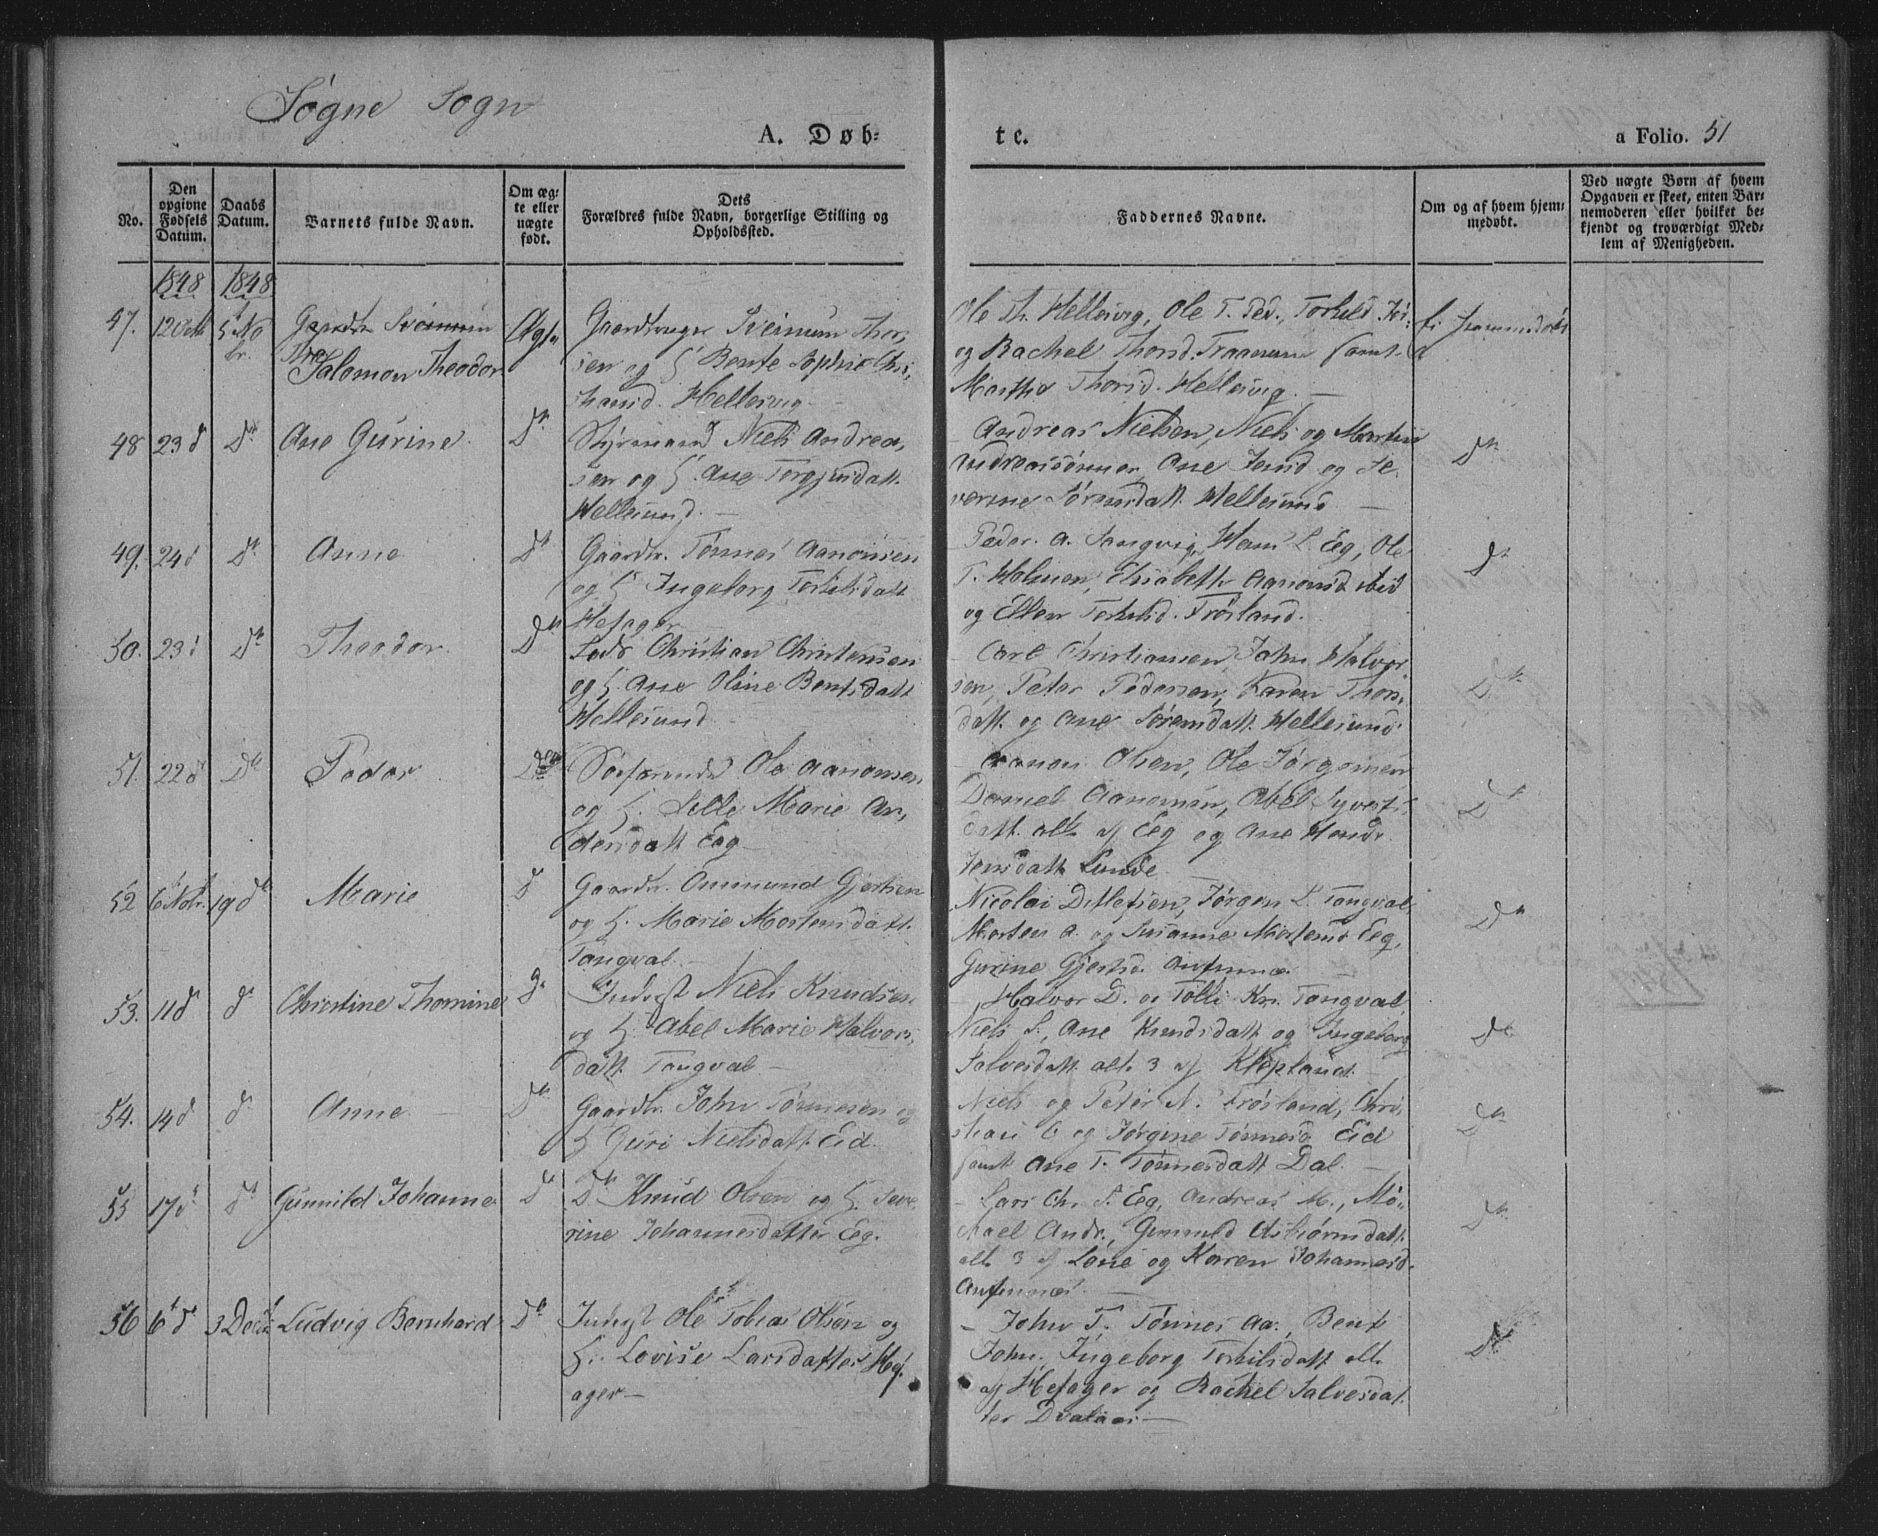 Søgne Sogn
A. Døb-
te.
a Folio. 51
No.
Den opgivne Fødsels Datum.
Daabs Datum.
Barnets fulde Navn.
Om ægte eller uægte født.
Dets Forældres fulde Navn, borgerlige Stilling og Opholdssted.
Faddernes Navne.
Om og af hvem hjemmedøbt.
Ved uægte Børn af hvem Opgaven er skeet, enten Barnemoderen eller hvilket bekjendt og troværdigt Medlem af Menigheden.
1848 1848
47. 12 Oct 5 No
br.
Salomon Theodor
Ægte
Gaardbruger Sveinum Thor,
sen og H. Bente Sophie Chri,
stiansd. Hellesvig.
Ole Th. Hellesvig, Ole T. Ped., Torkild
og Rachel Thorsd. samt
Martha Thorsd. Hellesvig.
48 23 d D° Ane Gurine D°
Styrmand Niels Andrea,
sen og H. Ane Torgjusdatt.
Hellesund.
Andreas Nielsen, Niels og Martin
Andreassønner Ane Jensd og Se
verine Sørensdatt. Hellesund
D°
49. 24 d D° Anne D°
Gaardbr. Tønnes Aanonsen
og H. Ingeborg Torkilsdatt
Høfager
Peder A. Langvig, Hans L. Eeg, Ole
T. Holmen, Elisabeth Aanonsd ibid
og Ellen Torkilsd. Frøsland.
D°
50. 23 d D° Theodor. D°
Lods Christian Christensen
og H. Ane Oline Bentsdatt
Hellesund
Carl Christiansen, John Halvor
sen, Peter Pedersen, Karen Thors,
datt. og Ane Sørensdatt. Hellesund
D°
51. 22 d D° Peder D°
Søefarende Ole Aanonsen
og H. Lille Marie An,
dersdatt Eeg
Aanon Olsen, Ole Jørgensen
Daniel Aanonsen, Abel Syverts
datt. alle af Eeg og Ane
Jensdatt. Lunde
D°
52 6 Nobr. 19 d° Marie d
Gaardbr. Ommund Gjertsen
og H. Marie Mortensdatt.
Tangval
Nicolai Ditlefsen, Jørgen L. Tangval
Morten A. og Susanne Mortensd Eeg,
Gurine Gjertsd. Amfennæs
D°
53. 11 d° d° Christine Thomine d°
Inderst Niels Knudsen
og H. Abel Marie Halvors,
datt. Tangval
Halvor D. og Tolli Kn. Tangval,
Niels S., Ane Knudsdatt og Ingeborg
Salvesdatt alle 3 af Klepland.
D°
54. 14 d d° Anne D°
Gaardbr. John Tønnesen og
H Guri Nielsdatt Eid
Niels og Peter N. Frøsland, Chri,
stian C og Jørgine Tønnesd. Eid
samt Ane T. Tønnesdatt Dal.
D°
55 17 d d° Gunnild Johanne d°
D° Knud Olsen og H. Seve
rine Johannesdatter Eeg.
Lars Ch. S. Eeg, Andreas M., Mi-
kael Andr., Gunnild Asbjørnsdatt.
alle 3 af Lone og Karen Johannesd.
Amfennæs
D°
56 6 d° 3 Decbr Ludvig Bernhard D°
Inderst Ole Tobias Olsen og
H. Lovise Larsdatter Høf,
ager
John T. Tønnes Aa., Bent
John, Ingeborg Torkilsdatt alle
af Høfager og Rachel Salvesdat
ter Dvalaas
D°